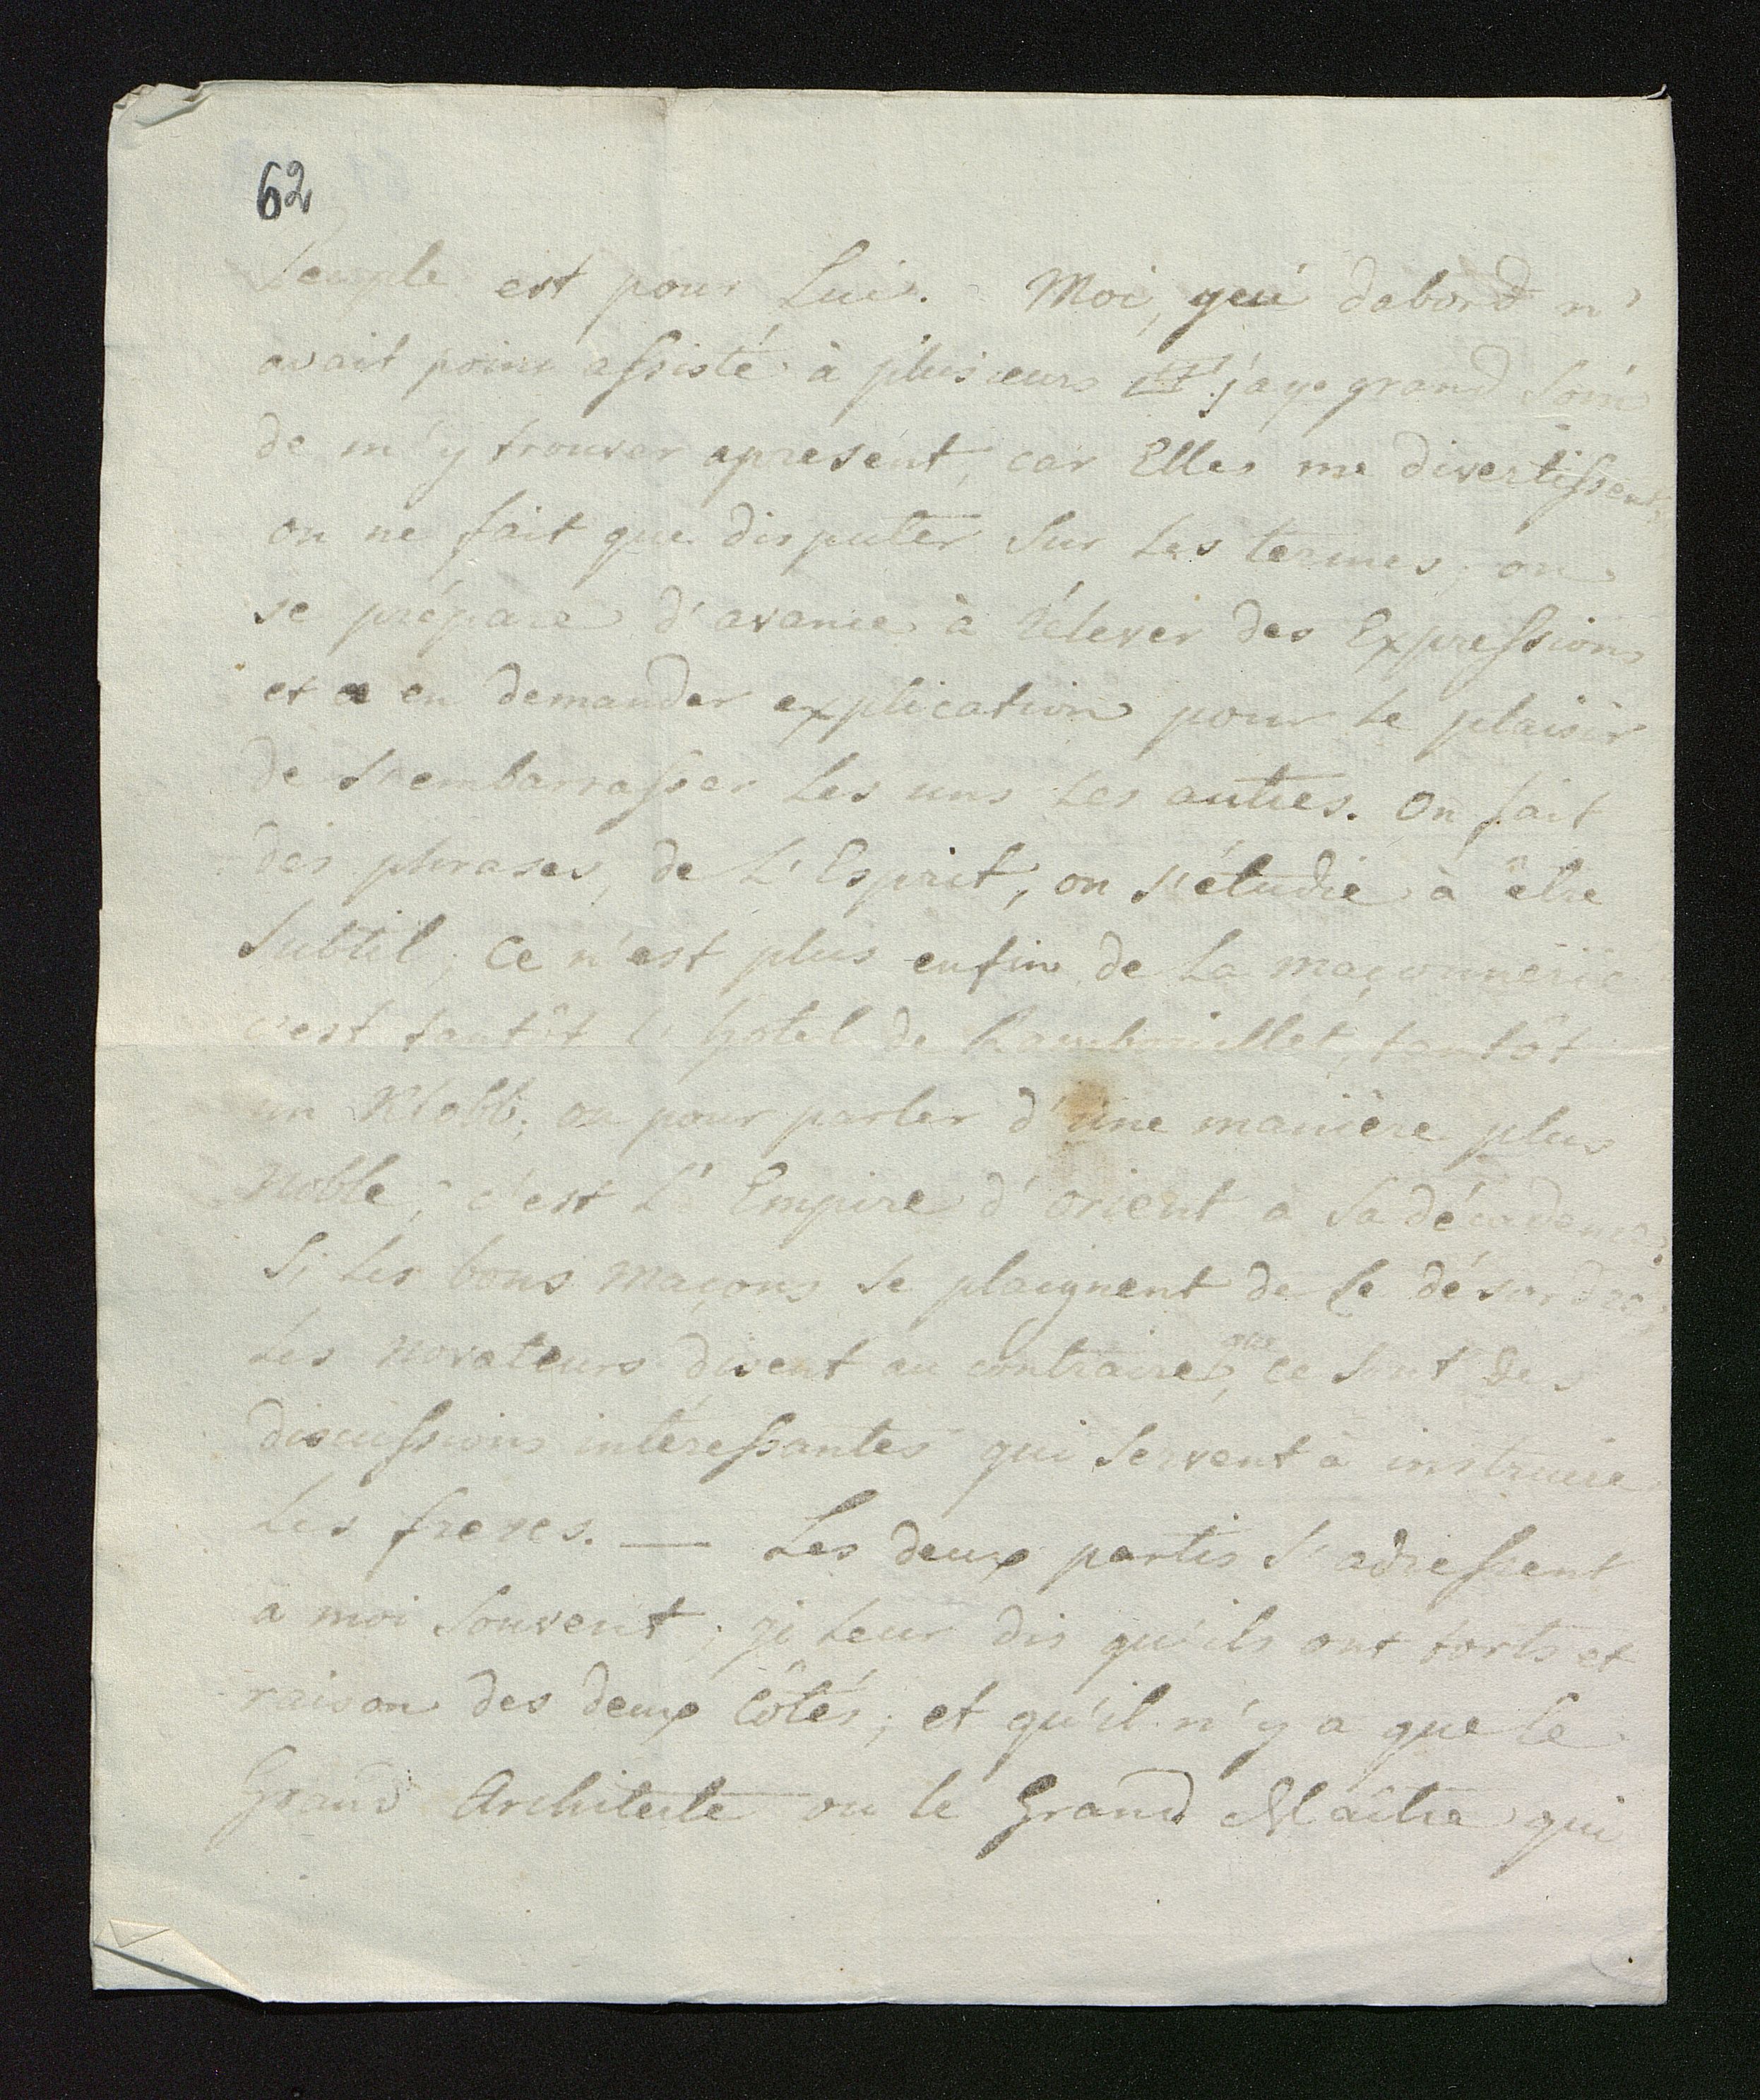 62
Peuple est pour Lui. Moi, qui dabord n'
avait point assisté à plusieurs j'aye grand Soin
de m'y trouver apresent, car Elles me divertissent,
on ne fait que disputer Sur Les termes, on
se prépare d'avance à rélever des Expressions
et a en demander explication pour Le plaisir
de s'embarrasser Les uns Les autres. On fait
des phrases, de L'Esprit, on s'étudie à être
Subtil; Ce n'est plus enfin de La maçonnerie
c'est tantôt l'hotel de Rambouillet, tantôt
un Klobb; ou pour parler d'une manière plus
Noble; c'est L'Empire d'orient a Sa décadence.
Si Les bons maçons Se plaignent de Ce désordre,
Les Novateurs disent au contraire, que ce Sont des
discussions intéressantes qui Servent à instruire
Les freres. — Les deux partis S'adressent
a moi Souvent; je Leur dis qu'ils ont torts et
raison des deux Côtés; et qu'il n'y a que Le
Grand Architecte ou le Grand Maître qui